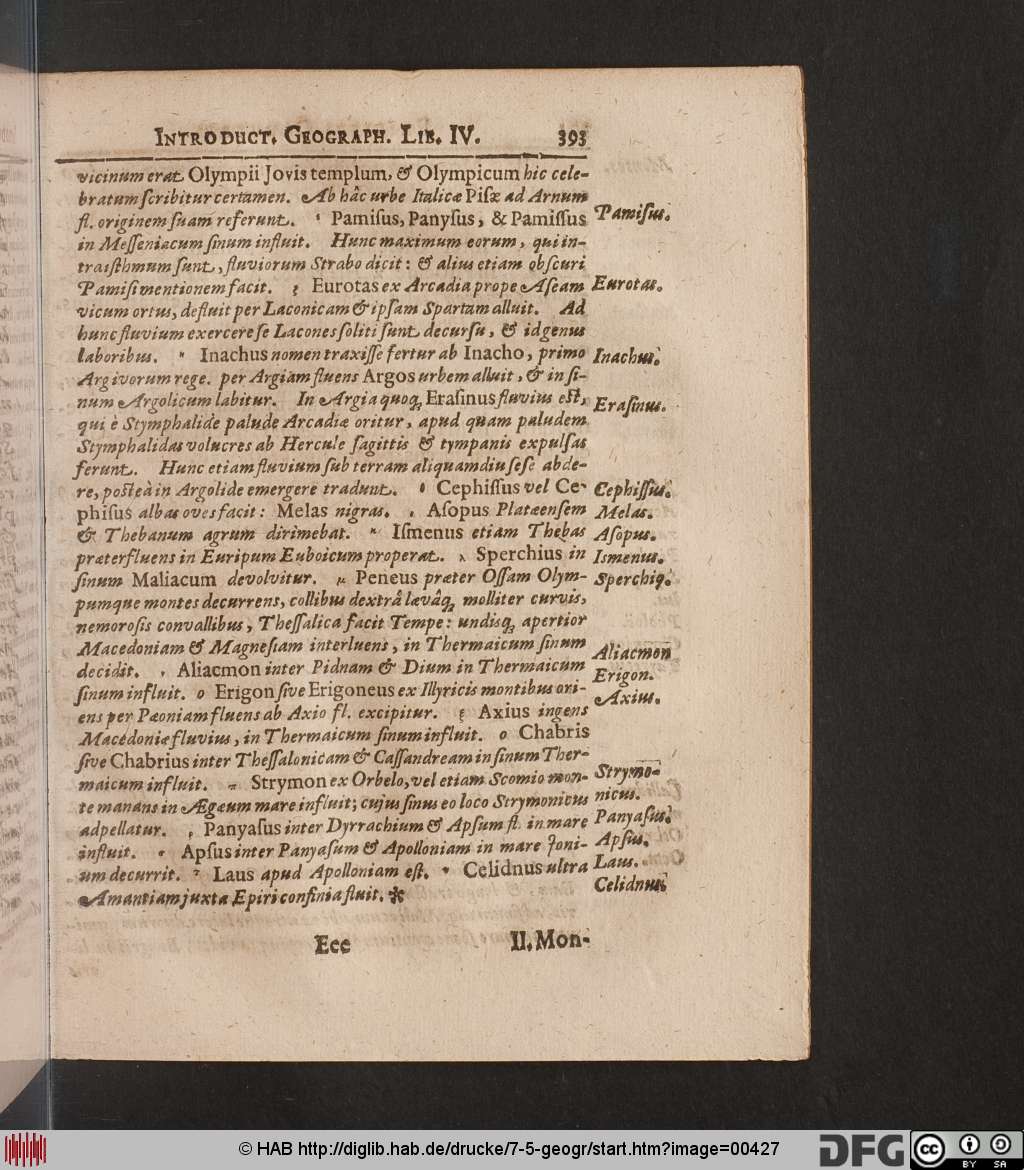 INTRODUCT. GEOGRAPH. LIB. IV. 393
vicinum erat Olympii Jovis templum, & Olympicum hic cele-
bratum scribitur certamen. Ab hâc urbe Italicæ Pisæ ad Arnum
fl. originem suam referunt. Pamisus, Panysus, & Pamissus
Pamisus.
in Messeniacum sinum influit. Hunc maximum eorum, qui in-
tra isthmum sunt, fluviorum Strabo dicit: & alius etiam obscuri
Pamisi mentionem facit. ζ Eurotas ex Arcadia prope Aseam
Eurotas.
vicum ortus, defluit per Laconicam & ipsam Spartam alluit. Ad
hunc fluvium exercere se Lacones soliti sunt decursu, & id genus
laboribus. η Inachus nomen traxisse fertur ab Inacho, primo
Inachus.
Argivorum rege. per Argiam fluens Argos urbem alluit, & in si-
num Argolicum labitur. In Argia quoq; Erasinus fluvius est,
Erasinus.
qui è Stymphalide palude Arcadiæ oritur, apud quam paludem
Stymphalidas volucres ab Hercule sagittis & tympanis expulsas
ferunt. Hunc etiam fluvium sub terram aliquamdiu sese abde-
re, posteà in Argolide emergere tradunt. θ Cephissus vel Ce-
Cephissus.
phisus albas oves facit: Melas nigras. ι Asopus Platæensem
Melas.
& Thebanum agrum dirimebat. κ Ismenus etiam Thebas
Asopus.
præterfluens in Euripum Euboicum properat. λ Sperchius in
Ismenus.
sinum Maliacum devolvitur. μ Peneus præter Ossam Olym-
Sperchiq;.
pumque montes decurrens, collibus dextrâ lævâq; molliter curvis,
nemorosis convallibus, Thessalica facit Tempe: undisq; apertior
Macedoniam & Magnesiam interluens, in Thermaicum sinum
decidit. ν Aliacmon inter Pidnam & Dium in Thermaicum
Aliacmon
sinum influit. ο Erigon sive Erigoneus ex Illyricis montibus ori-
Erigon.
ens per Pæoniam fluens ab Axio fl. excipitur. ξ Axius ingens
Axius.
Macedoniæ fluvius, in Thermaicum sinum influit. ο Chabris
sive Chabrius inter Thessalonicam & Cassandream in sinum Ther-
maicum influit. π Strymon ex Orbelo, vel etiam Scomio mon-
Strymo-
te manans in Ægæum mare influit; cujus sinus eo loco Strymonicus
nicus.
adpellatur. ρ Panyasus inter Dyrrachium & Apsum fl. in mare
Panyasus.
influit. σ Apsus inter Panyasum & Apolloniam in mare Joni-
Apsus.
um decurrit. τ Laus apud Apolloniam est. υ Celidnus ultra
Laus.
Amantiam juxta Epiri confinia fluit. *
Celidnus.
Eee II. Mon-
© HAB http://diglib.hab.de/drucke/7-5-geogr/start.htm?image=00427
DFG
cc BY SA